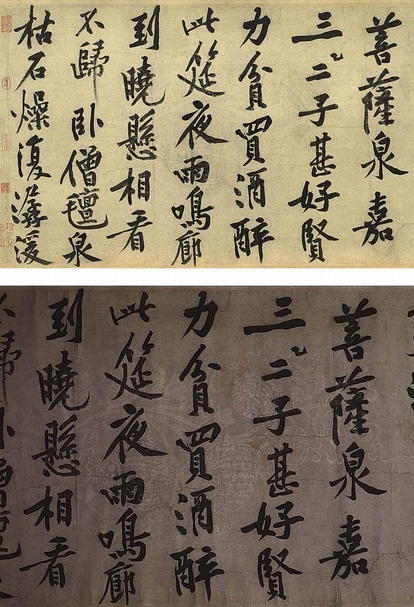 菩薩泉嘉
三二子甚好賢
力貧買酒醉
此筵夜雨鳴廊
到曉懸相看
不歸卧僧氈泉
枯石燥復潺湲
菩薩泉嘉
三二子甚好賢
力貧買酒醉
此筵夜雨鳴廊
到曉懸相看